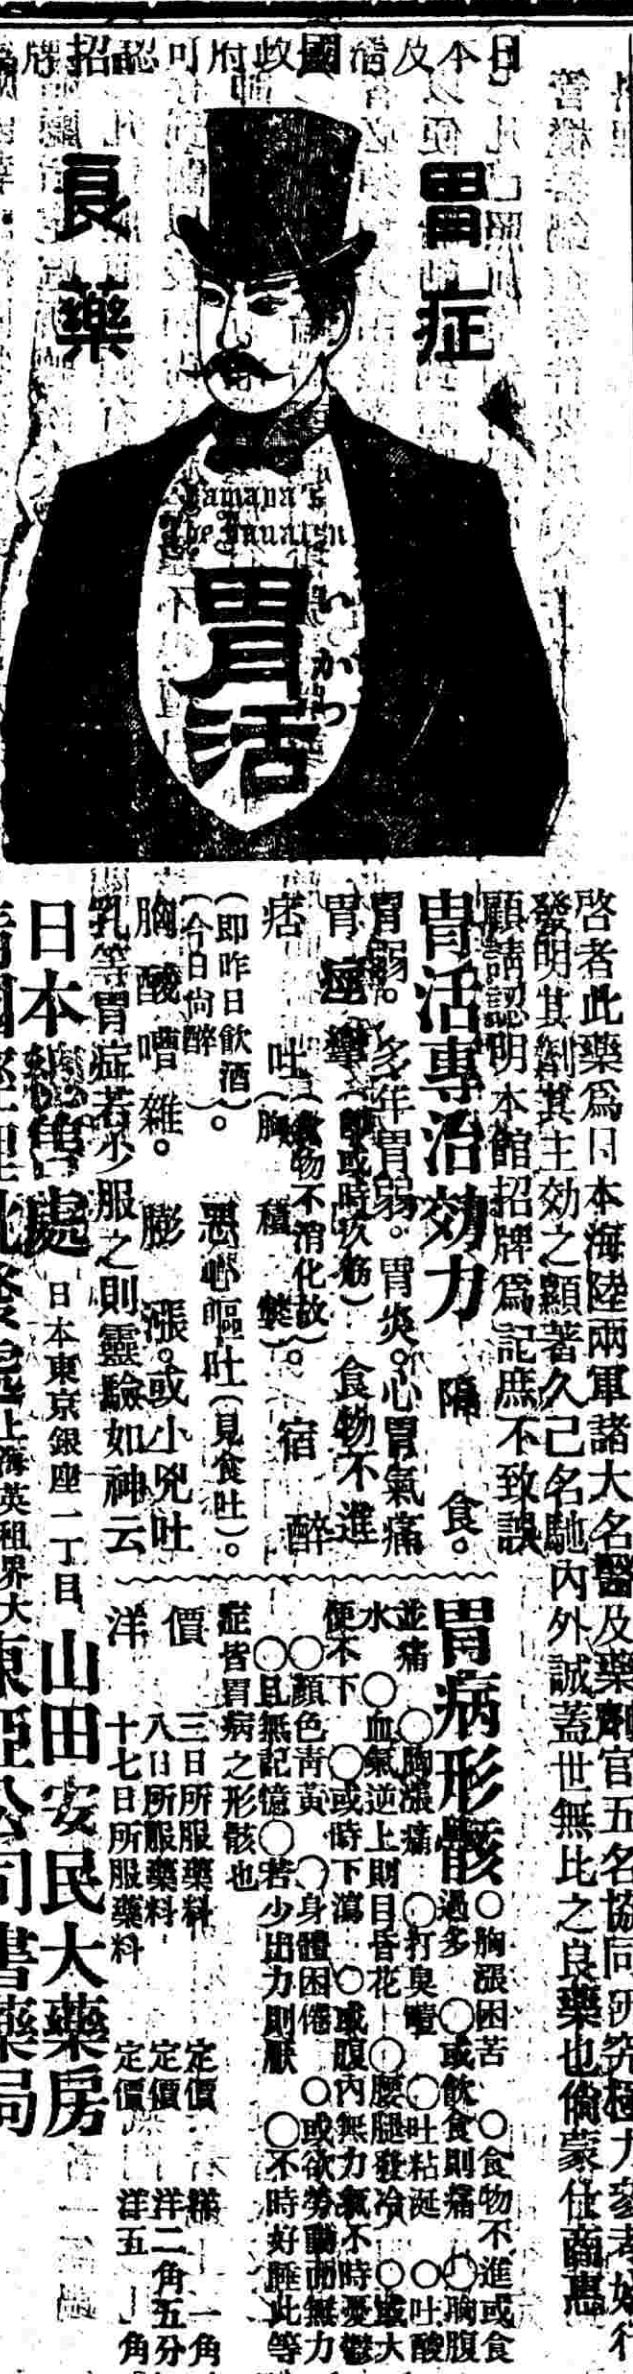 日本及清國政府可認招牌
胃症
良藥
胃活
いかつ
啓者此藥爲日本海陸兩軍諸大名醫及藥劑官五名協同研究極力參考
發明其創其主効之顯著久己名馳內外誠蓋世無比之良藥也倘蒙仕商惠
顧請認明本館招牌爲記庶不致誤
胃活專治効力 隔食。
胃弱。多年胃弱。胃炎。心胃氣痛
胃痙攣 食物不進
(食物不消化故)。
痞 吐(胸積)。宿醉
(即昨日飲酒
今日尙醉)。惡心嘔吐(見食吐)。
胸酸嘈雜。膨漲。或小兒吐
乳等胃症若少服之則靈驗如神云
胃病形骸 ○胸漲困苦 ○食物不進或食
過多 ○或飲食則痛 ○胸腹
並痛 ○胸漲痛 ○打臭噎 ○吐粘涎 ○吐酸
水 ○血氣逆上則目昏花 ○腰腿發冷 ○或大
便不下 ○或時下瀉 ○或腹內無力氣不時憂鬱
○顏色靑黃 ○身體困倦 ○或欲勞動而無力
○且無記憶 ○若少出力則厭 ○不時好睡此等
症皆胃病之形骸也
價 三日所服藥料 定價 洋一角
八日所服藥料 定價 洋二角五分
洋 十七日所服藥料 定價 洋五角
日本 處 日本東京銀座一丁目 山田安民大藥房
上海英租界大 東亞公司書藥局